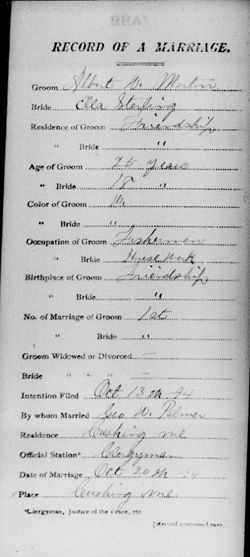 RECORD OF A MARRIAGE.
Groom Albert W. Morton
Bride Ella Sterling
Residence of Groom Friendship
" Bride "
Age of Groom 25 years
" Bride 18 "
Color of Groom W.
" Bride "
Occupation of Groom Fisherman
" Bride House Work
Birthplace of Groom Friendship
" Bride "
No. of Marriage of Groom 1st
" Bride "
Groom Widowed or Divorced —
Bride " " —
Intention Filed Oct 13th 94
By whom Married Geo W. Palmer
Residence Cushing Me
Official Station* Clergyman
Date of Marriage Oct 20th 94
Place Cushing Me.
*Clergyman, Justice of the Peace, etc